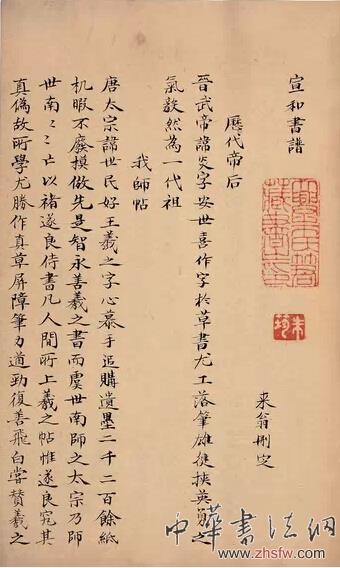 宣和書譜
来翁刪定
歷代帝后
晉武帝諱炎字安世喜作字於草書尤工落筆雄健挾英爽之
氣毅然為一代祖
我師帖
唐太宗諱世民好王羲之字心慕手追購遺墨二千二百餘紙
机暇不廢模倣先是智永善羲之書而虞世南師之太宗乃師
世南〻〻亡以褚遂良侍書凡人間所上羲之帖惟遂良究其
真偽故所學尤勝作真草屏障筆力遒勁復善飛白嘗贊羲之
朱
中華書法網
www.zhsfw.com